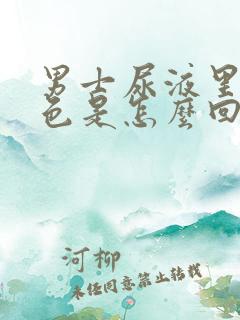 男士尿液里
色是怎麼回
河柳
未经同意禁止转载